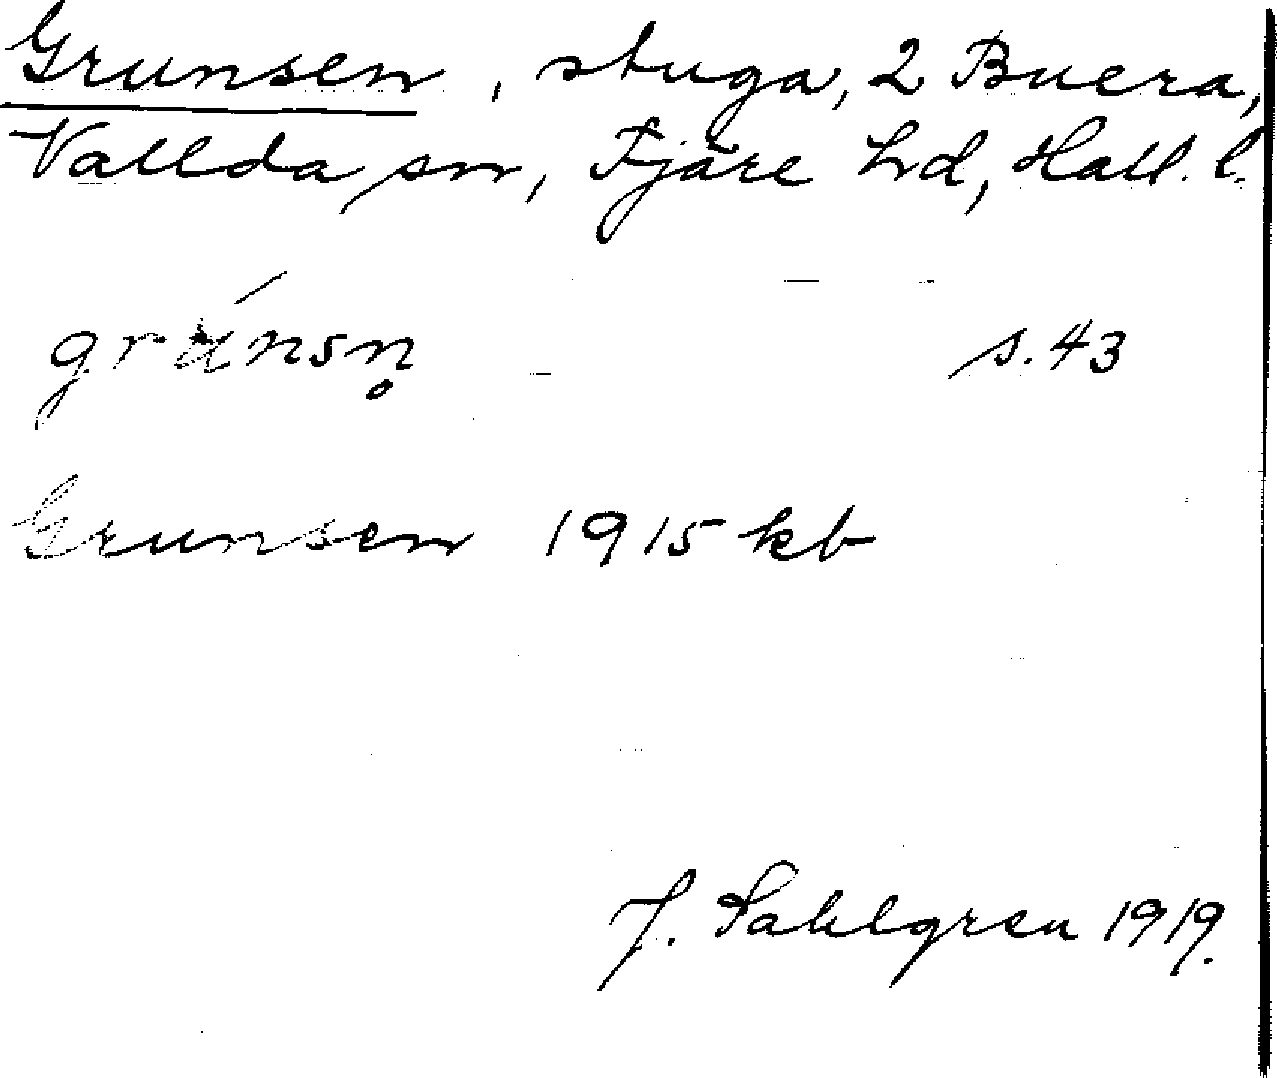 Grunsen, stuga, 2 Buera,
Vallda sn, Fjäre hd, Hall. l.
grúnsn̥ s. 43
Grunsen 1915 kb
J. Sahlgren 1919.